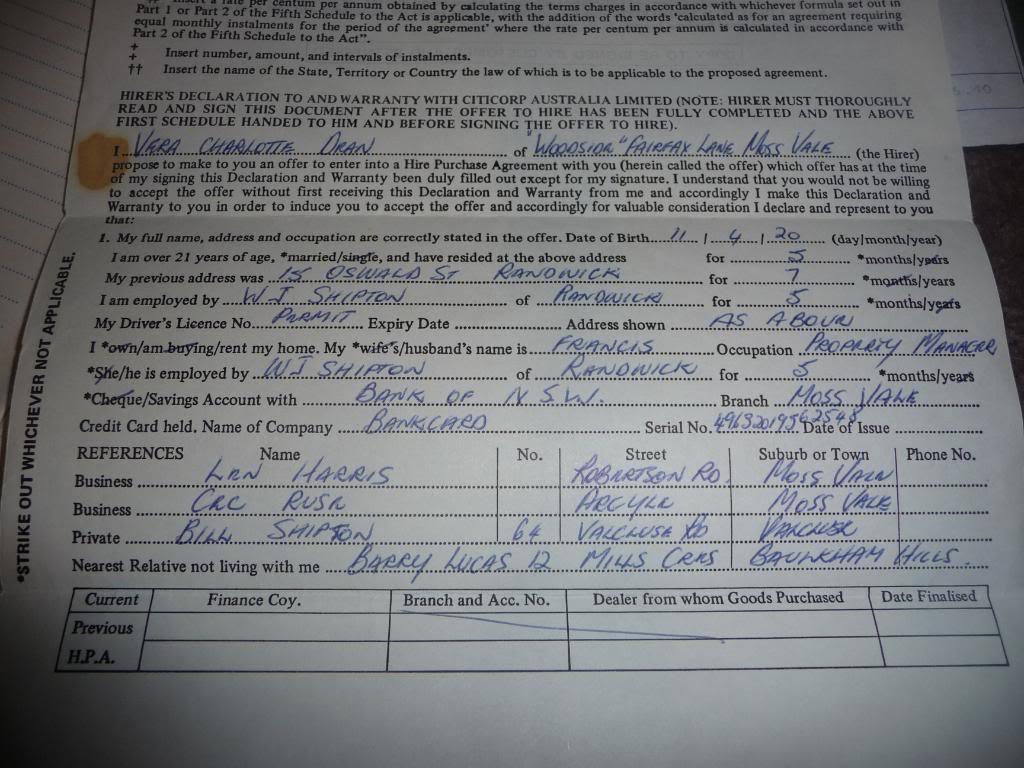 Insert a rate per centum per annum obtained by calculating the terms charges in accordance with whichever formula set out in
Part 1 or Part 2 of the Fifth Schedule to the Act is applicable, with the addition of the words 'calculated as for an agreement requiring
equal monthly instalments for the period of the agreement' where the rate per centum per annum is calculated in accordance with
Part 2 of the Fifth Schedule to the Act".
‡ Insert number, amount, and intervals of instalments.
†† Insert the name of the State, Territory or Country the law of which is to be applicable to the proposed agreement.
HIRER'S DECLARATION TO AND WARRANTY WITH CITICORP AUSTRALIA LIMITED (NOTE: HIRER MUST THOROUGHLY
READ AND SIGN THIS DOCUMENT AFTER THE OFFER TO HIRE HAS BEEN FULLY COMPLETED AND THE ABOVE
FIRST SCHEDULE HANDED TO HIM AND BEFORE SIGNING THE OFFER TO HIRE).
I VERA CHARLOTTE DEAN of "WOODSIDE" FAIRFAX LANE MOSS VALE (the Hirer)
propose to make to you an offer to enter into a Hire Purchase Agreement with you (herein called the offer) which offer has at the time
of my signing this Declaration and Warranty been duly filled out except for my signature. I understand that you would not be willing
to accept the offer without first receiving this Declaration and Warranty from me and accordingly I make this Declaration and
Warranty to you in order to induce you to accept the offer and accordingly for valuable consideration I declare and represent to you
that:
1. My full name, address and occupation are correctly stated in the offer. Date of Birth 11 / 4 / 20 (day/month/year)
I am over 21 years of age, *married/single, and have resided at the above address for 5 *months/years
My previous address was 15 OSWALD ST RANDWICK for 7 *months/years
I am employed by WJ SHIPTON of RANDWICK for 5 *months/years
My Driver's Licence No. PERMIT Expiry Date Address shown AS ABOVE
I *own/am buying/rent my home. My *wife's/husband's name is FRANCIS Occupation PROPERTY MANAGER
*She/he is employed by WJ SHIPTON of RANDWICK for 5 *months/years
*Cheque/Savings Account with BANK OF N S.W. Branch MOSS VALE
Credit Card held. Name of Company BANKCARD Serial No. Date of Issue
REFERENCES Name No. Street Suburb or Town Phone No.
Business LEN HARRIS ROBERTSON RD MOSS VALE
Business CEC RUSE ARGYLE MOSS VALE
Private BILL SHIPTON 64 VAUCLUSE RD VAUCLUSE
Nearest Relative not living with me BARRY LUCAS 12 MILLS CRES BAULKHAM HILLS.
Current Finance Coy. Branch and Acc. No. Dealer from whom Goods Purchased Date Finalised
Previous
H.P.A.
*STRIKE OUT WHICHEVER NOT APPLICABLE.